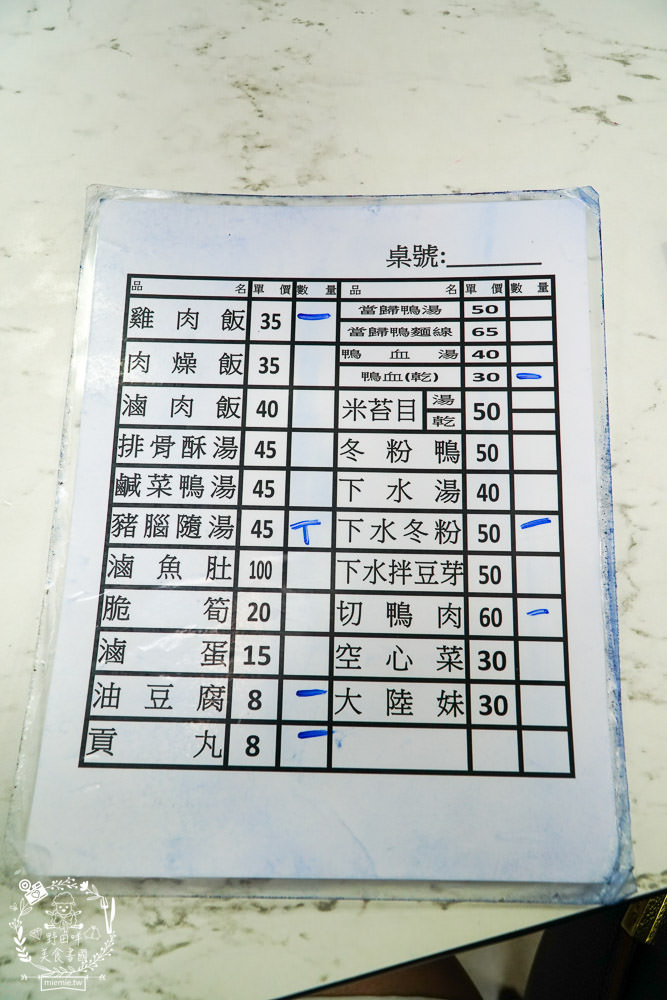 桌號:______
品名 單價 數量 品名 單價 數量
雞肉飯 35 一 當歸鴨湯 50
當歸鴨麵線 65
肉燥飯 35 鴨血湯 40
鴨血(乾) 30 一
滷肉飯 40 米苔目 湯 乾 50
排骨酥湯 45 冬粉鴨 50
鹹菜鴨湯 45 下水湯 40
豬腦隨湯 45 T 下水冬粉 50 一
滷魚肚 100 下水拌豆芽 50
脆筍 20 切鴨肉 60 一
滷蛋 15 空心菜 30
油豆腐 8 一 大陸妹 30
貢丸 8 一
美食書園
miemie.tw